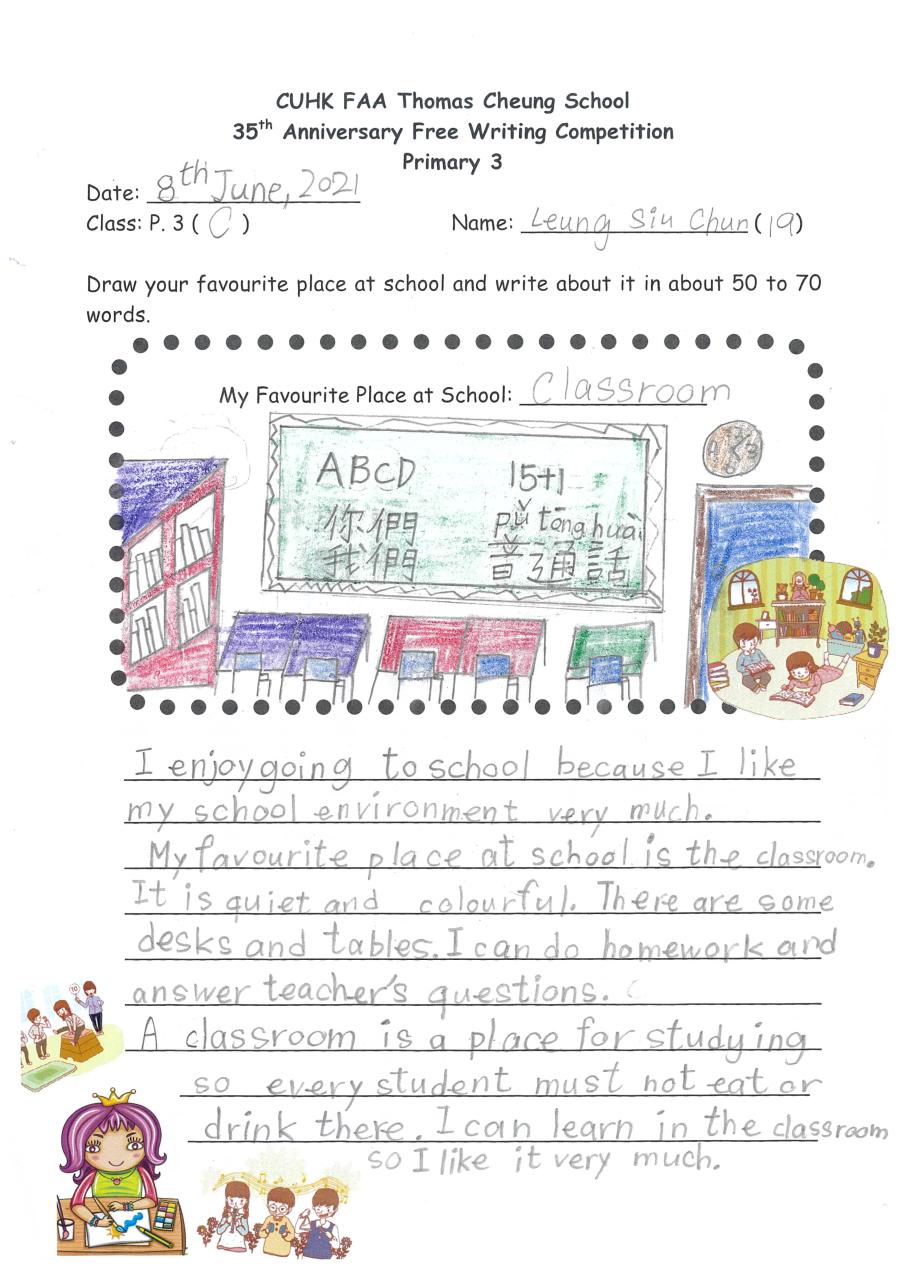 CUHK FAA Thomas Cheung School
35th Anniversary Free Writing Competition
Primary 3
Date: 8th June, 2021
Class: P. 3 ( C ) Name: Leung Siu Chun (19)
Draw your favourite place at school and write about it in about 50 to 70
words.
My Favourite Place at School: Classroom
ABCD 15+1
你們 pǔ tōng huà
我們 普通話
I enjoy going to school because I like
my school environment very much.
My favourite place at school is the classroom.
It is quiet and colourful. There are some
desks and tables. I can do homework and
answer teacher's questions.
A classroom is a place for studying
so every student must not eat or
drink there. I can learn in the classroom
so I like it very much.
10